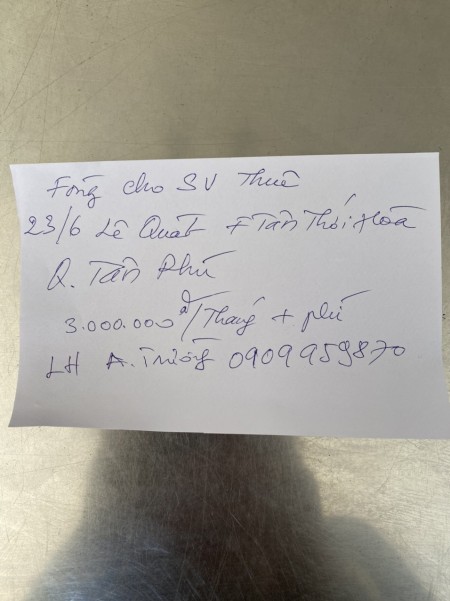 Fòng cho SV Thuê
23/6 Lê Quát F Tân Thới Hòa
Q. Tân Phú
3.000.000đ/Tháng + phí
LH A. Trường 0909959870